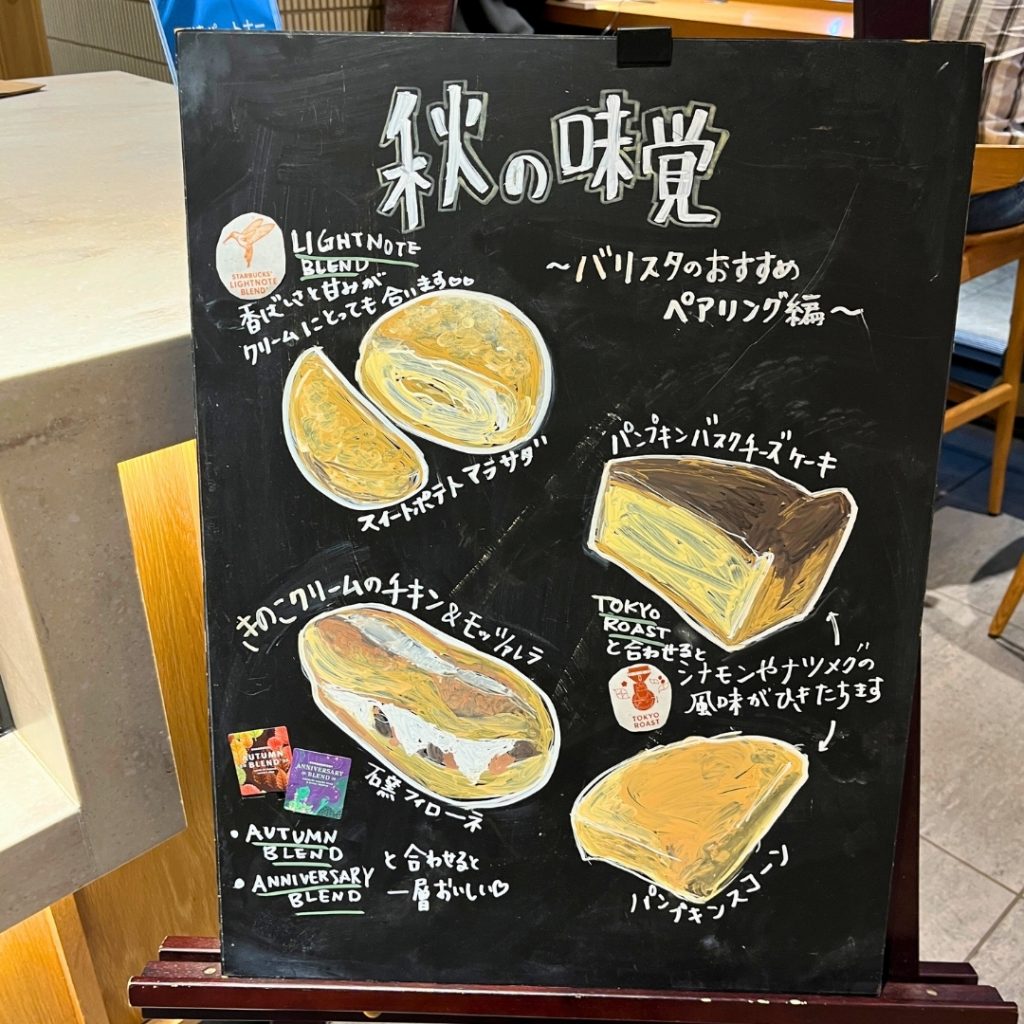 秋の味覚
~バリスタのおすすめ
ペアリング編~
STARBUCKS®
LIGHTNOTE
BLEND
LIGHTNOTE
BLEND
香ばしさと甘みが
クリームにとっても合います♡♡
スイートポテトマラサダ
パンプキンバスクチーズケーキ
TOKYO
ROAST
と合わせると
シナモンやナツメグの
風味がひきたちます
TOKYO
ROAST
パンプキンスコーン
きのこクリームのチキン&モッツァレラ
石窯フィローネ
AUTUMN
BLEND
ANNIVERSARY
BLEND
・AUTUMN
BLEND
・ANNIVERSARY
BLEND
と合わせると
一層おいしい♡